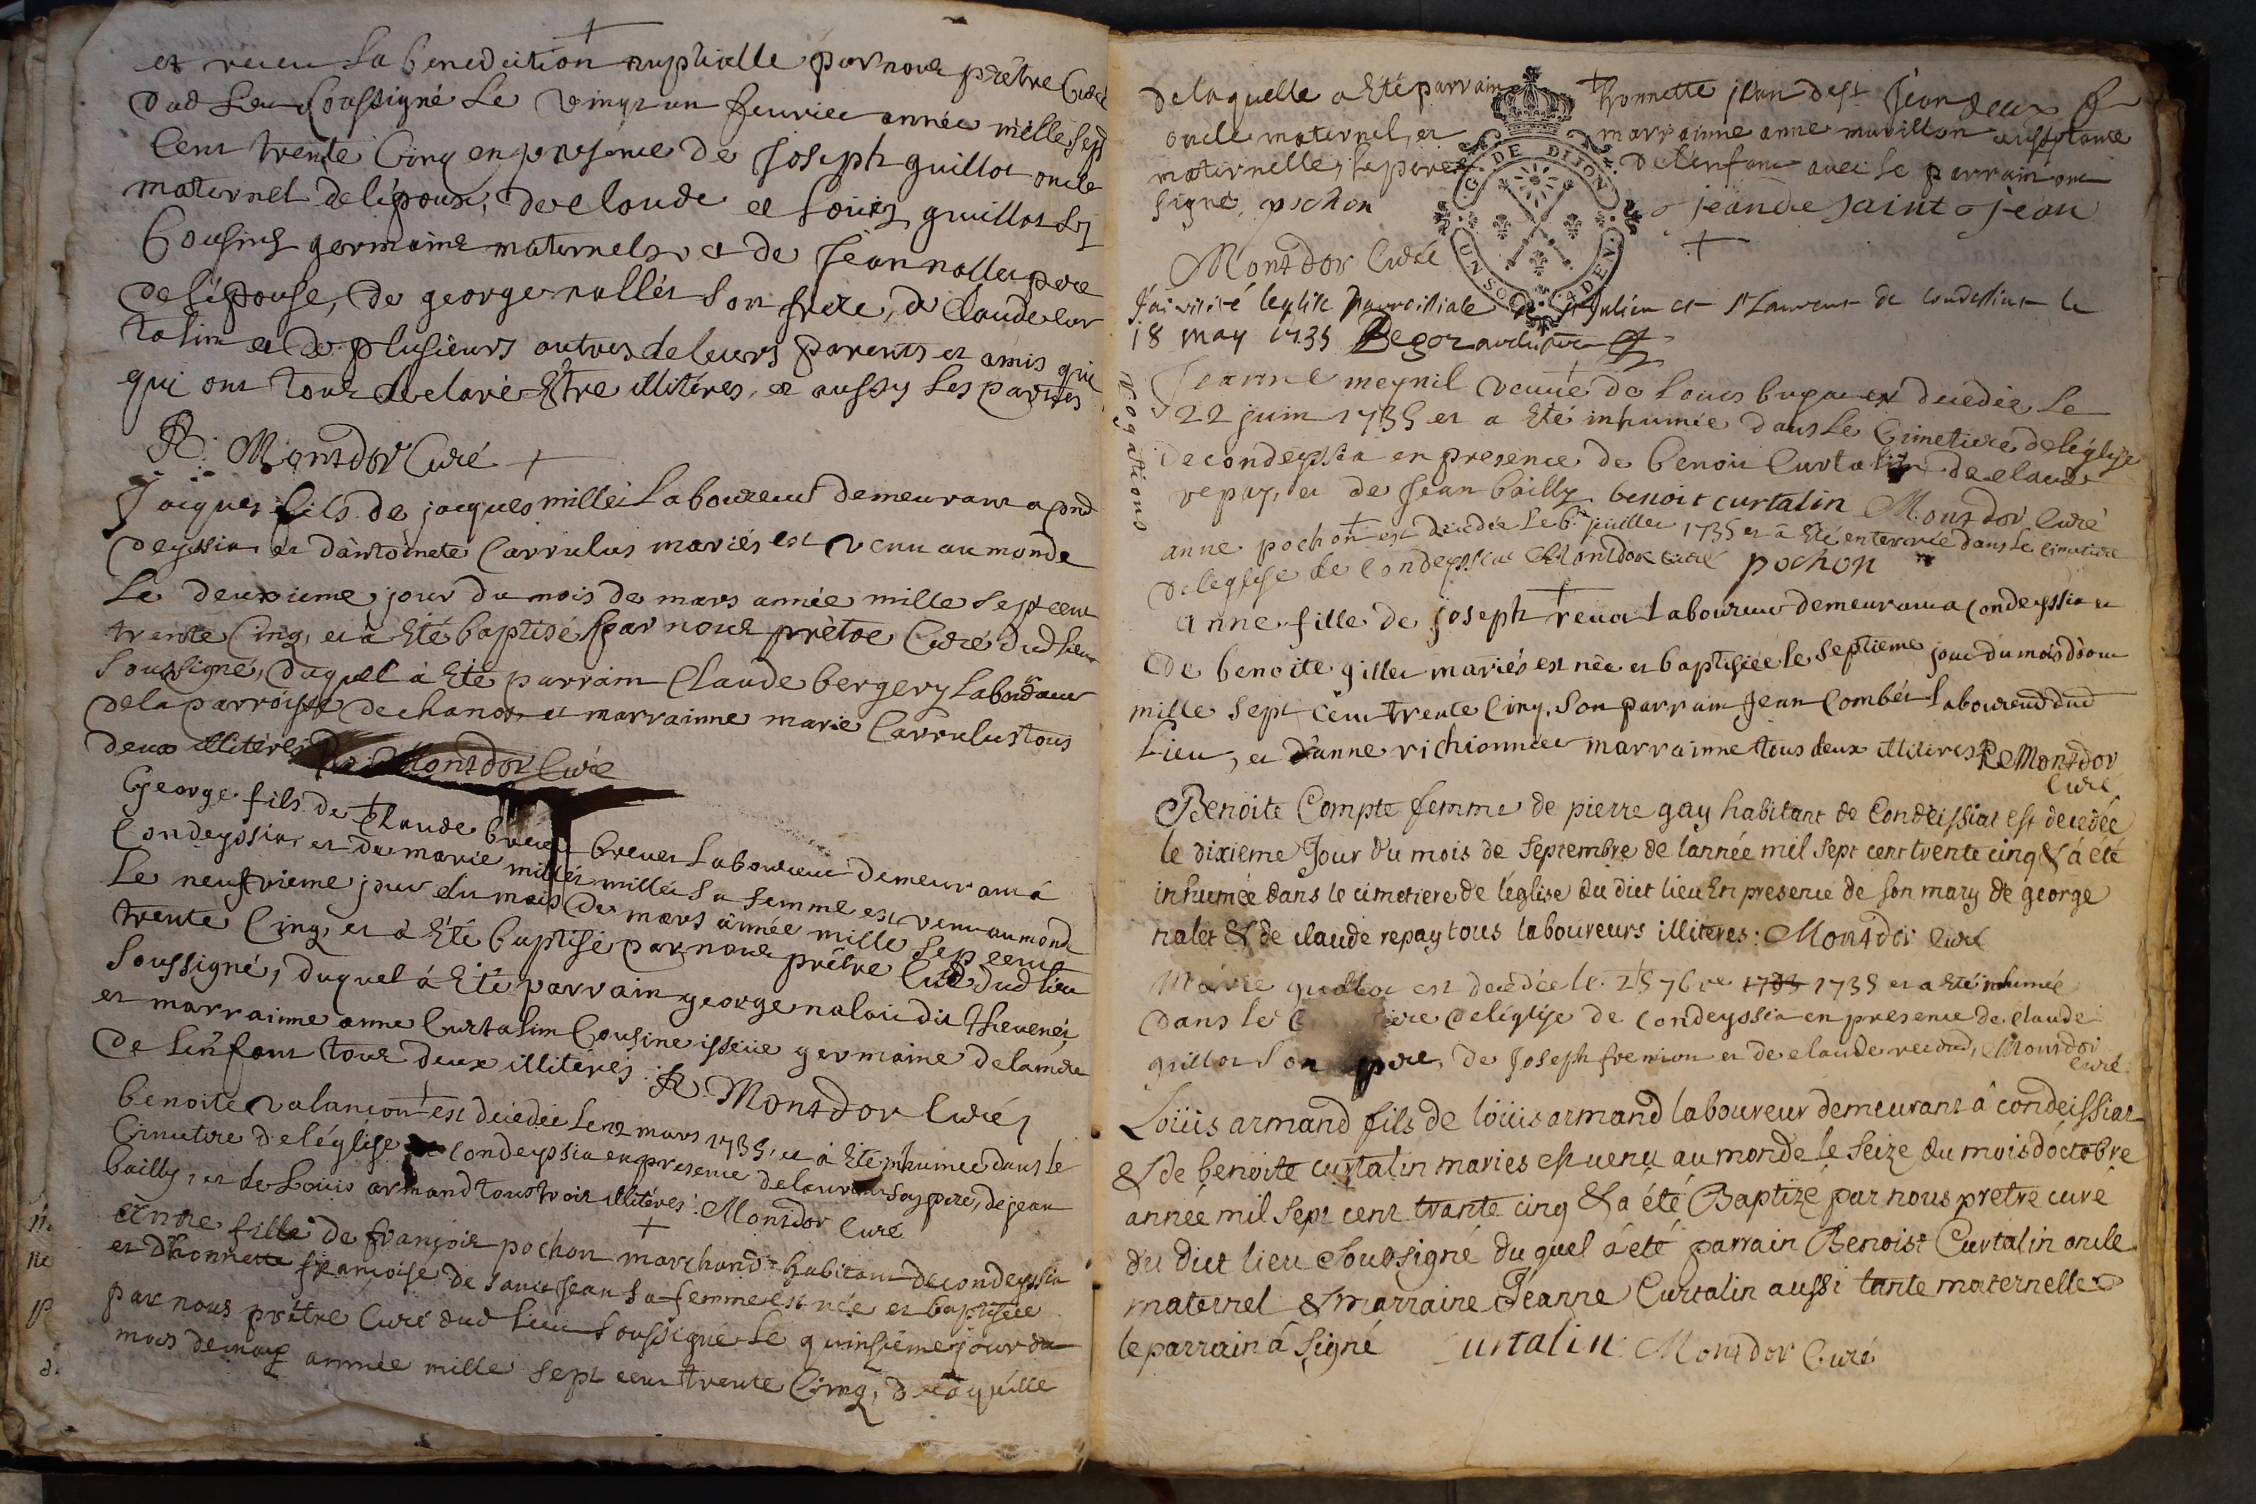 et receu la benediction nuptialle par nous prêtre Curé
dud lieu soussigné le vingt un feurier année mille sept
Cent trente Cinq en presence de Joseph guillot oncle
maternel de lépoux, de claude et Loüis guillot ses
Cousins germains maternels, et de Jean nallet pere
de lépouse, de george nallet son frere, de Claude cur
talin et de plusieurs autres de leurs parents et amis qui
qui ont tous declaré Être illitéres, et aussy les parties
R. Montdor Curé
Jacques fils de jacques millet Laboureur demeurant a Con
deyssia, et dantoinete Carrulus mariés est venu au monde
Le deuxieme jour du mois de mars année mille sept cent
trente Cinq, et à Eté baptisé par nous prètre Curé dud lieu
soussigné, duquel à Eté parrain Claude bergery Laboureur
de la parroisse de chanos et marrainne marie Carrulus tous
deux illitéres R. Montdor Curé
George fils de Claude breuet breuet Laboureur demeurant à
Condeyssia, et de marie millet millet sa femme est venu au monde
Le neufvieme jour du mois de mars année mille sept cent
trente Cinq, et à Eté baptisé par nous prêtre Curé dud lieu
soussigné, duquel à Eté parrain george nalait dit thevenet
et marrainne anne Curtalin Cousine issüe germaine de la mere
de Lenfant tous deux illiteres. R. Montdor Curé
benoite valancon est decedée le 12 mars 1735, et à Eté inhumée dans le
Cimetire de léglise de Condeyssia en presence de laurent son pere, de jean
bailly, et de Louis armand tous trois illitéres. Montdor Curé
anne fille de françois pochon marchand habitant de condeyssia
et dhonnette françoise de saint Jean sa femme est née et baptisée
par nous prêtre Curé dud lieu soussigné le quinsieme jour du
mois de mars année mille sept cent trente Cinq, de laquelle
de laquelle a Eté parrain honnette jean de st Jean
oncle maternel, et marrainne anne marillon aussy tante
maternelle, le pere de lenfant avec le parrain ont
signé, pochon jean de saint jean
Montdor Curé
G. DE DIJON
UN SOL 4 DEN.
J'ai visité leglise parroissiale de st Julien et st Laurent de condessiat le
18 may 1735 Begoz
Rogations
Jeanne meynil veuve de Louis est decedée le
22 juin 1735 et a Eté inhumée dans le Cimetiere de léglise
de condeyssia en presence de benoit Curtalin de claude
repay, et de Jean bailly. benoit curtalin Montdor Curé
anne pochon est decedée le 6e juillet 1735 et à Eté enterrée dans le Cimetiere
de leglise de Condeyssia Montdor curé pochon
anne fille de joseph reuat laboureur demeurant a condeyssia et
de benoite gillet mariés est née et baptisée le septieme jour du mois daout
mille sept cent trente Cinq, son parrain Jean Combet laboureur dud
Lieu, et danne richionnée marrainne tous deux illiteres R. Montdor
Curé
Benoite Compte femme de pierre gay habitant de Condeissiat est decedée
le dixieme Jour du mois de septembre de lannée mil sept cent trente cinq & à eté
inhumée dans le cimetiere de l'église du dict lieu En presence de son mary de george
nalet & de claude repay tous laboureurs illiteres: Montdor Curé
Marie guillot est decedée le 25 7bre 1733 1735 et a Eté inhumée
dans le de léglise de condeyssia en presence de claude
guillot son pere, de Joseph fremion et de claude Montdor
Curé
Loüis armand fils de loüis armand laboureur demeurant â condeissiat
& de benoite curtalin mariés est uenu au monde le seize du mois d'octobre
année mil sept cent trante cinq & a été Baptize par nous pretre cure
du dict lieu soubsigné du quel a été parrain Benoist Curtalin oncle
maternel & marraine Jeanne Curtalin aussi tante maternelle
le parrain â signé Curtalin Montdor Curé